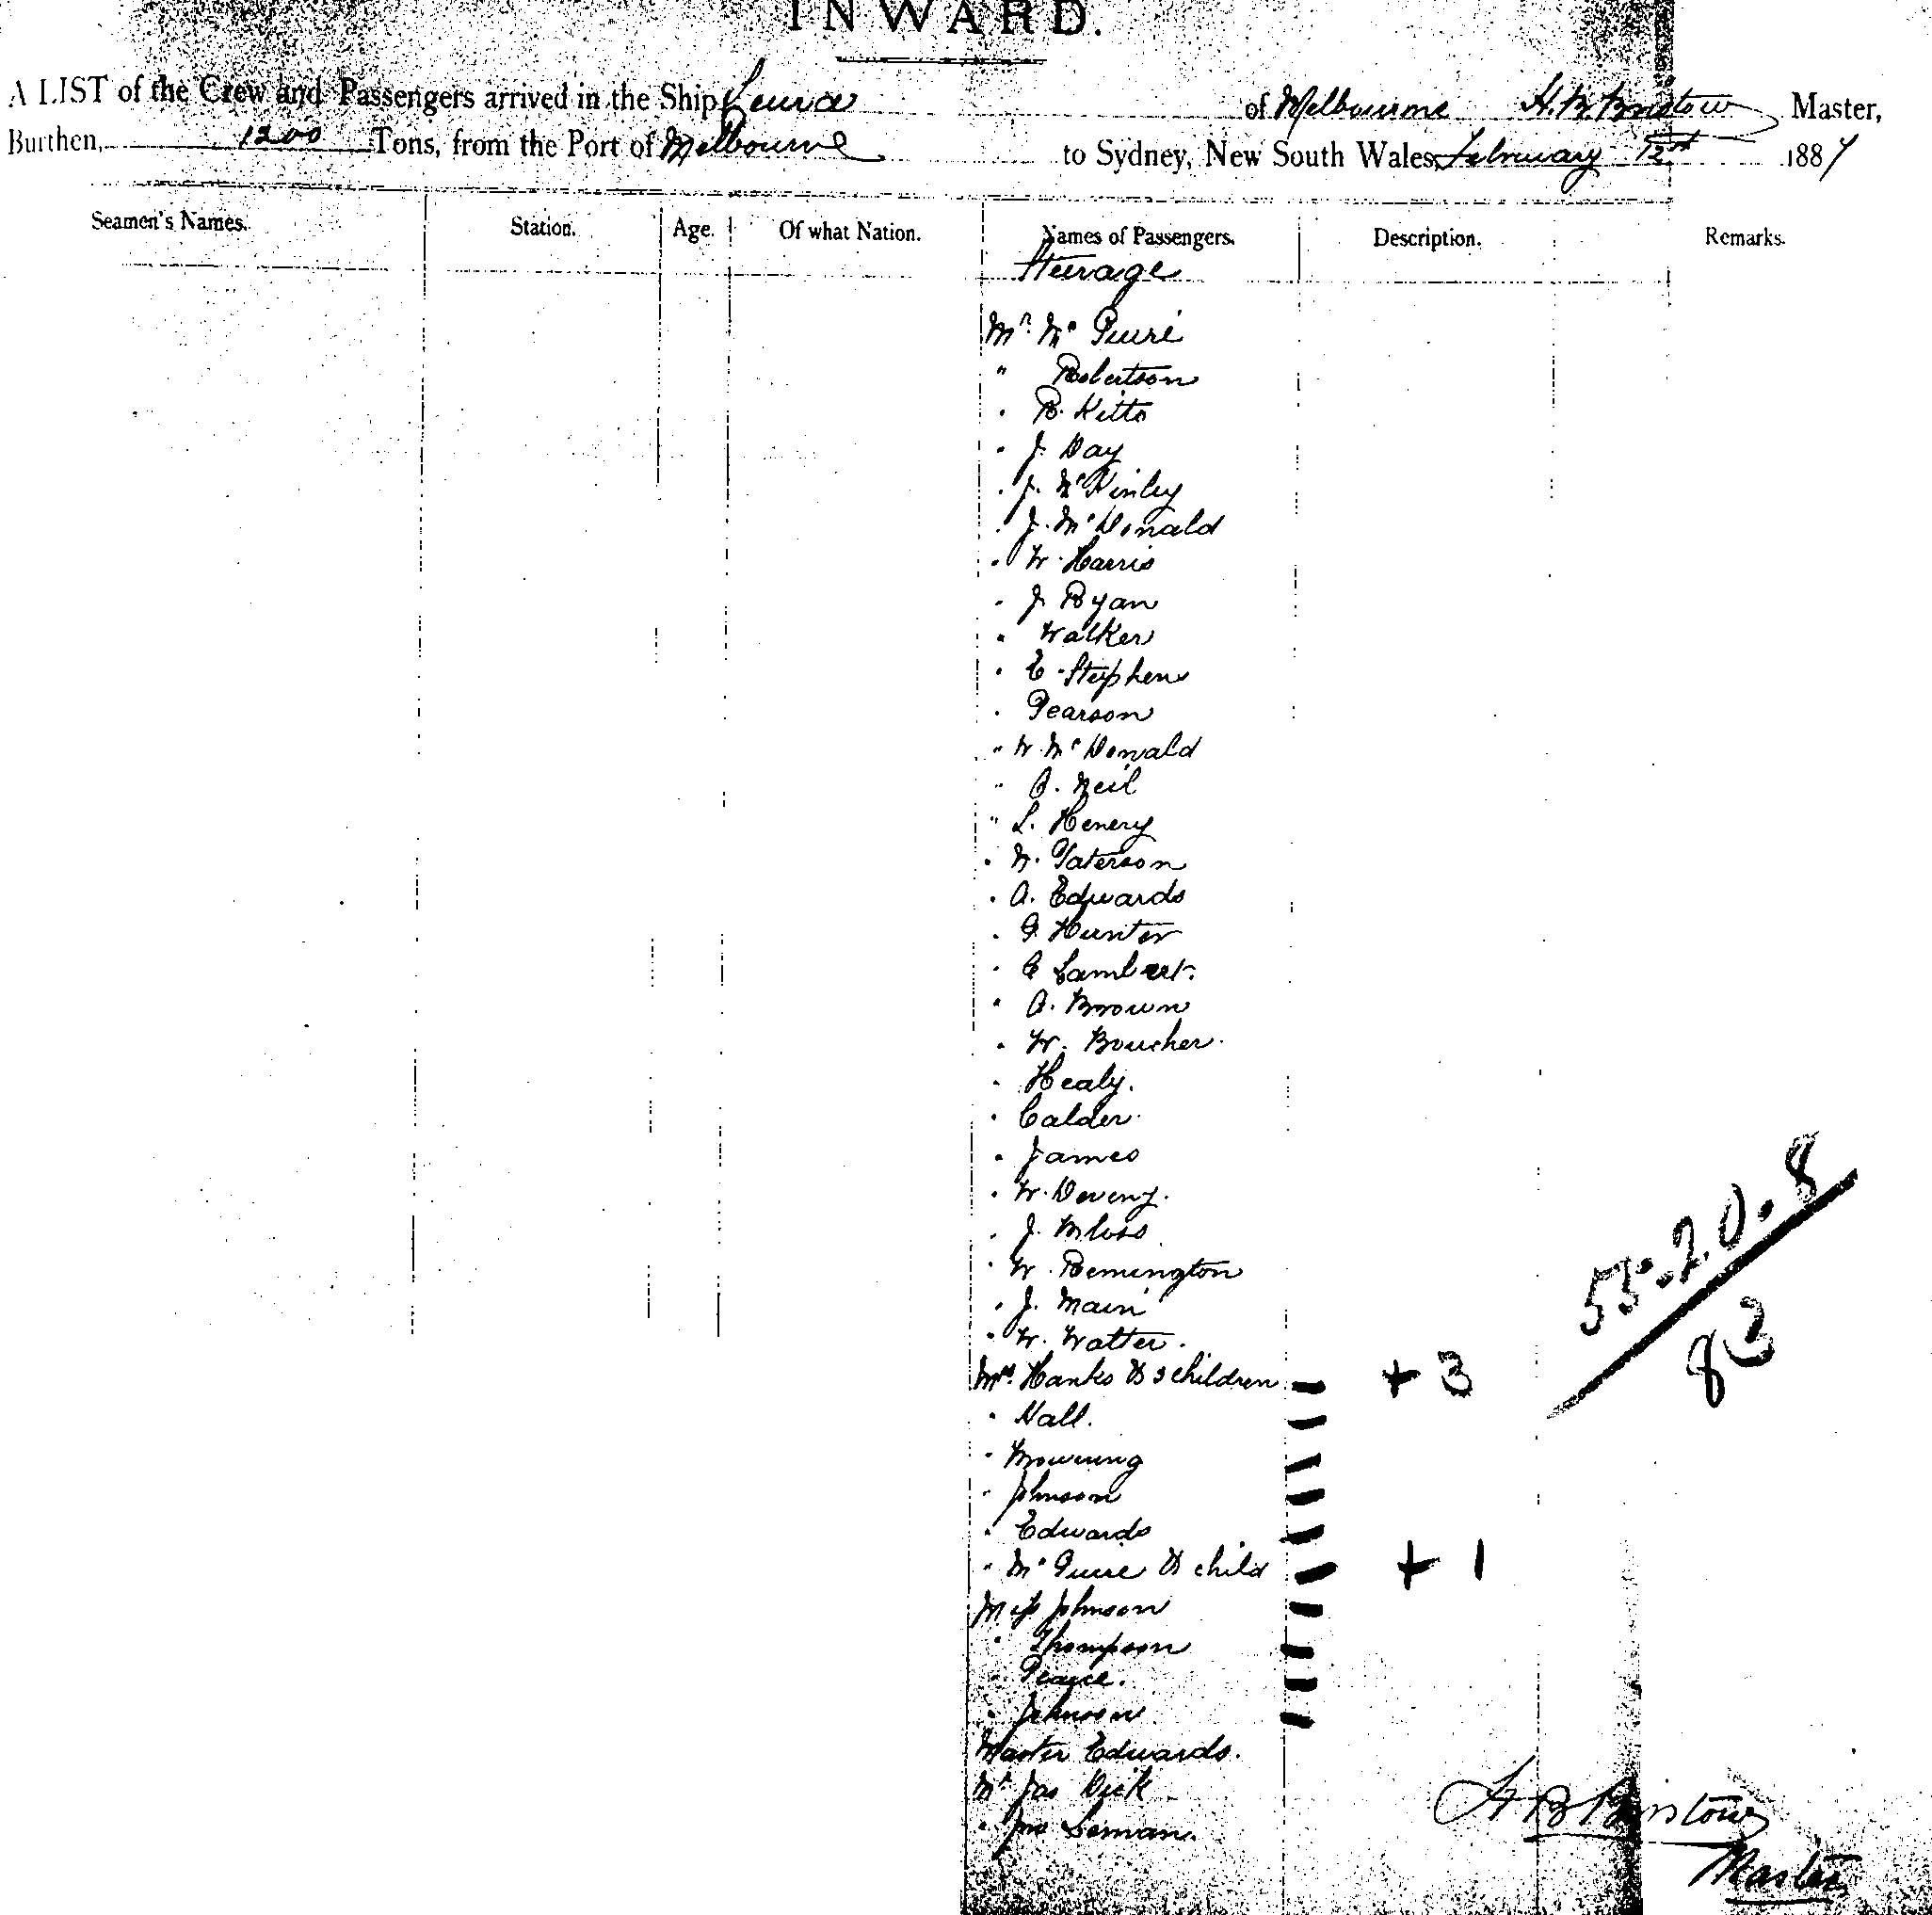 INWARD.
A LIST of the Crew and Passengers arrived in the Ship Leura of Melbourne H. B. Bristow Master,
Burthen, 1200 Tons, from the Port of Melbourne to Sydney, New South Wales, February 12th 1887
Seamen's Names. Station. Age. Of what Nation. Names of Passengers. Description. Remarks.
Steerage
Mr. Mc Guire
" Robertson
" B. Kitto
" J. Day
" J. McKinley
" J. McDonald
" W. Harris
" J. Ryan
" Walker
" E. Stephens
" Pearson
" W. McDonald
" A. Neil
" L. Henery
" W. Paterson
" A. Edwards
" G. Hunter
" C Lambert.
" A. Brown
" W. Boucher.
" Healy.
" Calder.
" James
" W. Deveny.
" J.
" W. Remington
" J. Main
" W. Watter.
Mrs. Hanks & 3 children + 3
" Hall.
"
" Johnson
" Edwards
" Mc Guire & child + 1
Miss Johnson
" Thompson
" Pearce.
" Johnson
Master Edwards.
Mr. Jas Dick
" Jno Leman.
55.20.8
83
H B Bristow
Master